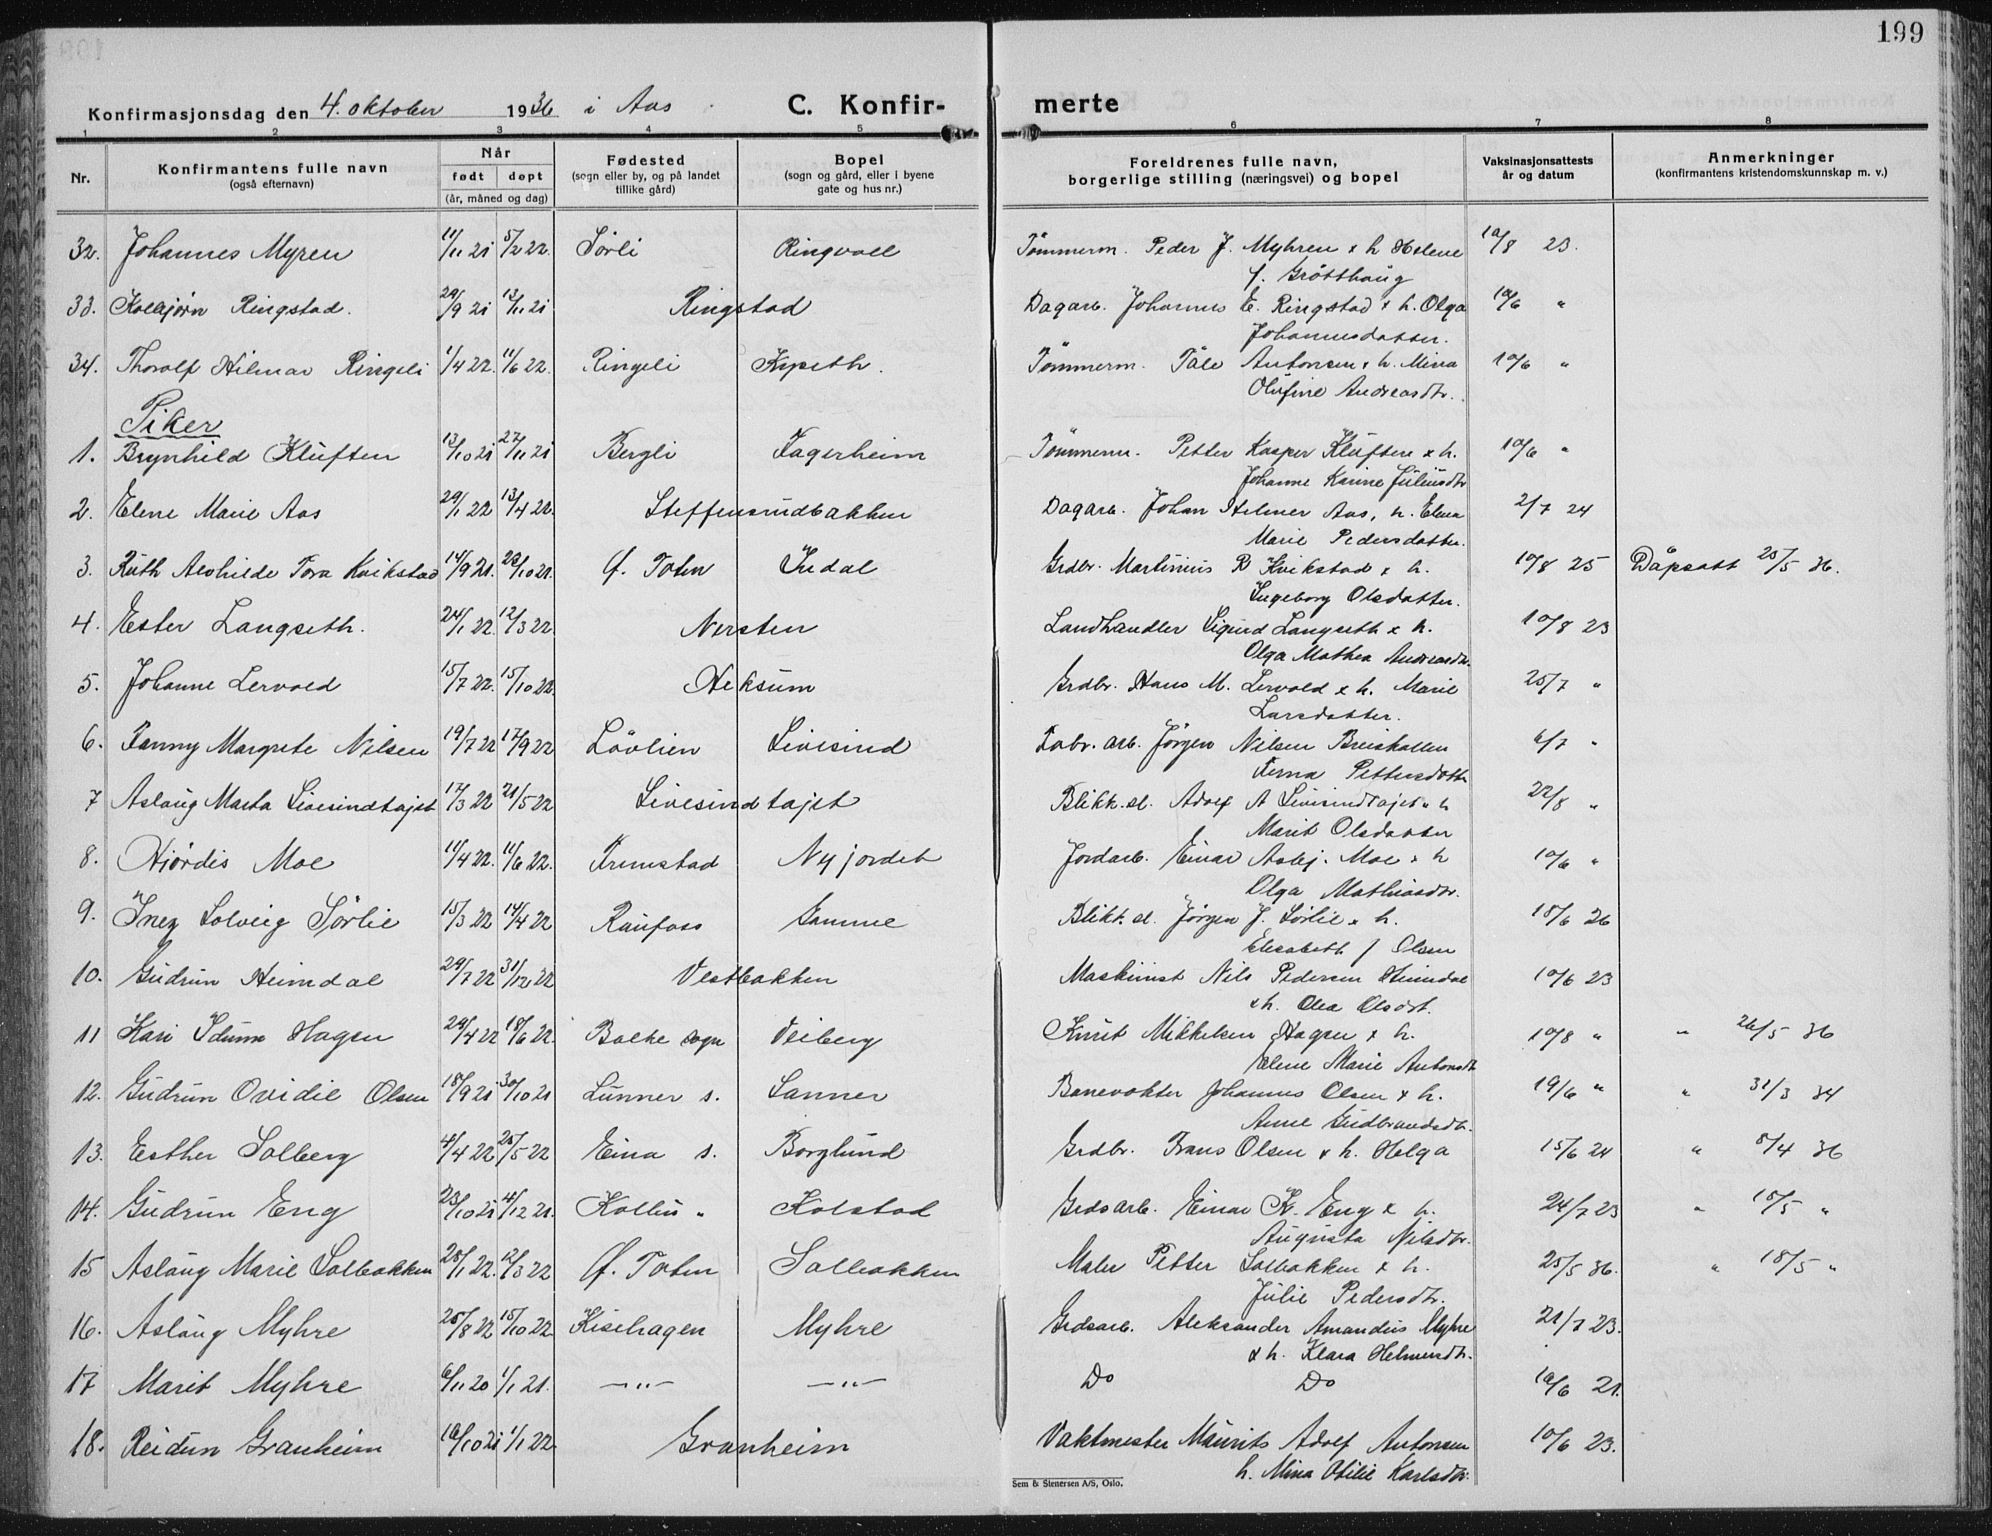 199
Konfirmasjonsdag den 4. oktober 1936 i Aas. C. Konfir- merte
1 2 3 4 5 6 7 8
Nr. Konfirmantens fulle navn (også efternavn) Når født døpt (år, måned og dag) Fødested (sogn eller by, og på landet tillike gård) Bopel (sogn og gård, eller i byene gate og hus nr.) Foreldrenes fulle navn, borgerlige stilling (næringsvei) og bopel Vaksinasjonsattests år og datum Anmerkninger (konfirmantens kristendomskunnskap m. v.)
32. Johannes Myren 11/11 21 5/2 22. Sørli Ringvoll Tømmerm. Peder J. Myhren & h Helene 10/8 23.
f. Grøtthaug
33. Kolbjørn Ringstad. 29/9 21 13/11 21 Ringstad Dagarb. Johannes E. Ringstad & h. Olga 10/6 "
Johannesdatter.
34. Thorolf Hilmar Ringeli 1/4 22. 11/6 22. Ringeli Kyseth. Tømmerm. Påle Antonsen & h. Mina 10/6 "
Olufine Andreasdtr.
Piker
1. Brynhild Kluften 13/10 21 27/11 21 Bergli Fagerheim Tømmerm. Petter Kasper Kluften & h. 10/6 "
Johanne Karine Juliusdtr
2. Elene Marie Aas 29/1 22 13/4 22. Steffensrudbakken Dagarb. Johan Helmer Aas, h. Elena 2/7 24
Marie Pedersdatter.
3. Ruth Alvhilde Tora Kvikstad 14/9 21. 22/10 21. Ø. Toten Indal Grdbr. Martinius R Kvikstad & h. 10/8 25 Dåpsatt 25/5 36.
Ingeborg Olsdatter.
4. Ester Langseth. 24/1 22. 12/3 22. Nersten Landhandler Sigurd Langseth & h. 10/8 23
Olga Mathea Andreasdtr.
5. Johanne Lervold 15/7 22. 15/10 22. Heksum Grdbr. Hans M. Lervold & h. Marie 25/7 "
Larsdatter.
6. Fanny Margrete Nilsen 19/7 22 17/9 22 Løvlien Sivesind Fabr. arb. Jørgen Nilsen Breiskallen 6/7 "
Ferna Pettersdatter
7 Aslaug Marta Sivesindtajet 17/3 22 21/5 22 Sivesindtajet Blikk.sl. Adolf A Sivesindtajet & h 22/8 "
Marit Olsdatter
8. Hjørdis Moe 11/4 22. 11/6 22. Frimstad Nyjordet Jordarb. Einar Asbj. Moe & h 10/6 "
Olga Mathiasdtr.
9. Inez Solveig Sørlie 15/3 22 14/4 22 Raufoss Gamme Blikk.sl. Jørgen J. Sørlie & h. 18/6 26
Elisabeth f Olsen
10. Gudrun Heimdal 29/7 22 31/12 22 Vestbakken Maskinist Nils Pedersen Heimdal 10/6 23
& h. Olea Olsdtr.
11 Kari Idunn Hagen 29/4 22 18/6 22. Balke sogn Veiberg Knut Mikkelsen Hagen & h. 10/8 " " 26/5 36
Elene Marie Antonsdtr
12. Gudrun Ovidie Olsen 18/9 21 30/10 21 Lunner s. Sanner Banevokter Johannes Olsen & h. 19/6 " " 31/3 34
Anne Gudbrandsdtr.
13. Esther Solberg 4/4 22 25/5 22 Eina s. Borglund Grdbr. Frans Olsen & h. Helga 15/6 24 " 8/4 36
14. Gudrun Eng 23/10 21 4/12 21. Kolbu " Kolstad Grdsarb. Einar K. Eng & h. 24/7 23 " 15/5 "
Augusta Nilsdtr.
15 Aslaug Marie Solbakken 28/1 22. 12/3 22 Ø. Toten Solbakken Maler Petter Solbakken & h. 25/5 36. " 18/5 "
Julie Pedersdtr.
16. Aslaug Myhre 25/8 22 15/10 22. Kisehagen Myhre Grdsarb. Aleksander Amandus Myhre 21/7 23.
& h. Klara Helmersdtr.
17 Marit Myhre 6/11 20 1/1 21. —"— —"— Do Do 10/6 21.
18. Reidun Granheim 16/10 21 1/1 22. Granheim Vaktmester Maurits Adolf Antonsen 10/6 23.
h. Mina Otilie Karlsdtr.
Sem & Stenersen A/S, Oslo.